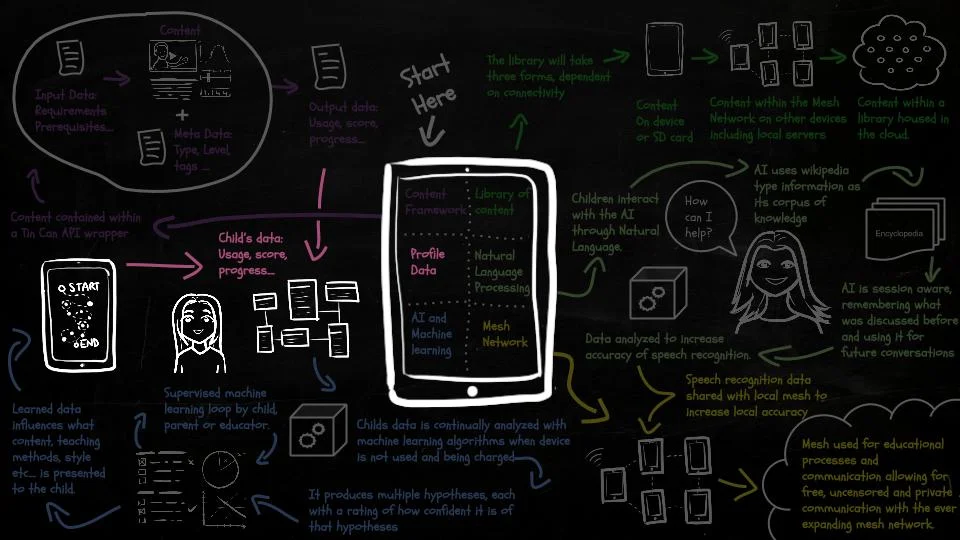 Content
Input Data:
Requirements
Prerequisites...
+
Meta Data:
Type, Level,
tags ...
Output data:
Usage, score,
progress...
Start
Here
The library will take
three forms, dependent
on connectivity
Content
On device
or SD card
Content within the Mesh
Network on other devices
including local servers
Content within a
library housed in
the cloud.
Content contained within
a Tin Can API wrapper
Child's data:
Usage, score,
progress...
START
END
Content
Framework
Library of
content
Profile
Data
Natural
Language
Processing
AI and
Machine
learning
Mesh
Network
Children interact
with the AI
through Natural
Language.
How
can I
help?
AI uses wikipedia
type information as
its corpus of
knowledge
Encyclopedia
AI is session aware,
remembering what
was discussed before
and using it for
future conversations
Data analyzed to increase
accuracy of speech recognition.
Speech recognition data
shared with local mesh to
increase local accuracy
Mesh used for educational
processes and
communication allowing for
free, uncensored and private
communication with the ever
expanding mesh network.
Learned data
influences what
content, teaching
methods, style
etc... is presented
to the child.
Supervised machine
learning loop by child,
parent or educator.
Childs data is continually analyzed with
machine learning algorithms when device
is not used and being charged
It produces multiple hypotheses, each
with a rating of how confident it is of
that hypotheses